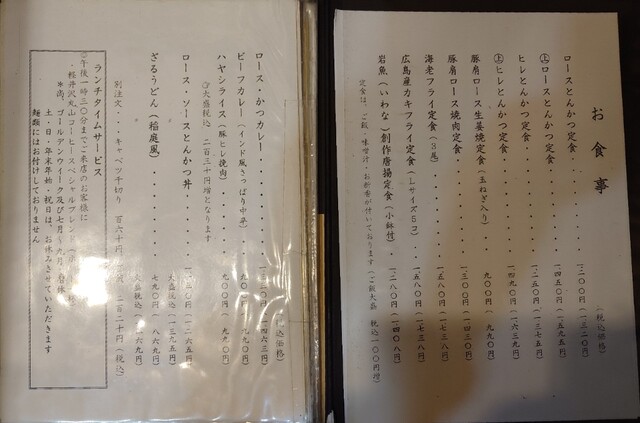 お食事
(税込価格)
ロースとんかつ定食・・・・・一二〇〇円(一三二〇円)
㊤ロースとんかつ定食・・・・・一四五〇円(一五九五円)
ヒレとんかつ定食・・・・・一二五〇円(一三七五円)
㊤ヒレとんかつ定食・・・・・一四九〇円(一六三九円)
豚肩ロース生姜焼定食(玉ねぎ入り)・・九〇〇円(九九〇円)
豚肩ロース焼肉定食・・・・・一三〇〇円(一四三〇円)
海老フライ定食(3尾)・・・・一五八〇円(一七三八円)
広島産カキフライ定食(Lサイズ5コ)・・一五八〇円(一七三八円)
岩魚(いわな)創作唐揚定食(小鉢付)・一二八〇円(一四〇八円)
定食は、ご飯・味噌汁・お新香が付いております(ご飯大盛 税込一〇〇円増)
(税込価格)
ロース・かつカレー・・・・・一三三〇円(一四六三円)
ビーフカレー(インド風さっぱり中辛)九〇〇円(九九〇円)
ハヤシライス(豚ヒレ挽肉)・・九〇〇円(九九〇円)
大盛税込 二百三十円増となります
ロース・ソースとんかつ丼・・・一一五〇円(一二六五円)
大盛税込(一三九五円)
ざるうどん(稲庭風)・・・・・七九〇円(八六九円)
大盛税込
別注文・・・キャベツ千切り 百六十円 二百二十円(税込)
ランチタイムサービス
◎午後一時三〇分までご来店のお客様に
・軽井沢丸山コーヒースペシャルブレンド
*尚、ゴールデンウイーク及び七月~九月
土・日・年末年始・祝日は、お休みさせていただきます
麺類にはお付けしておりません